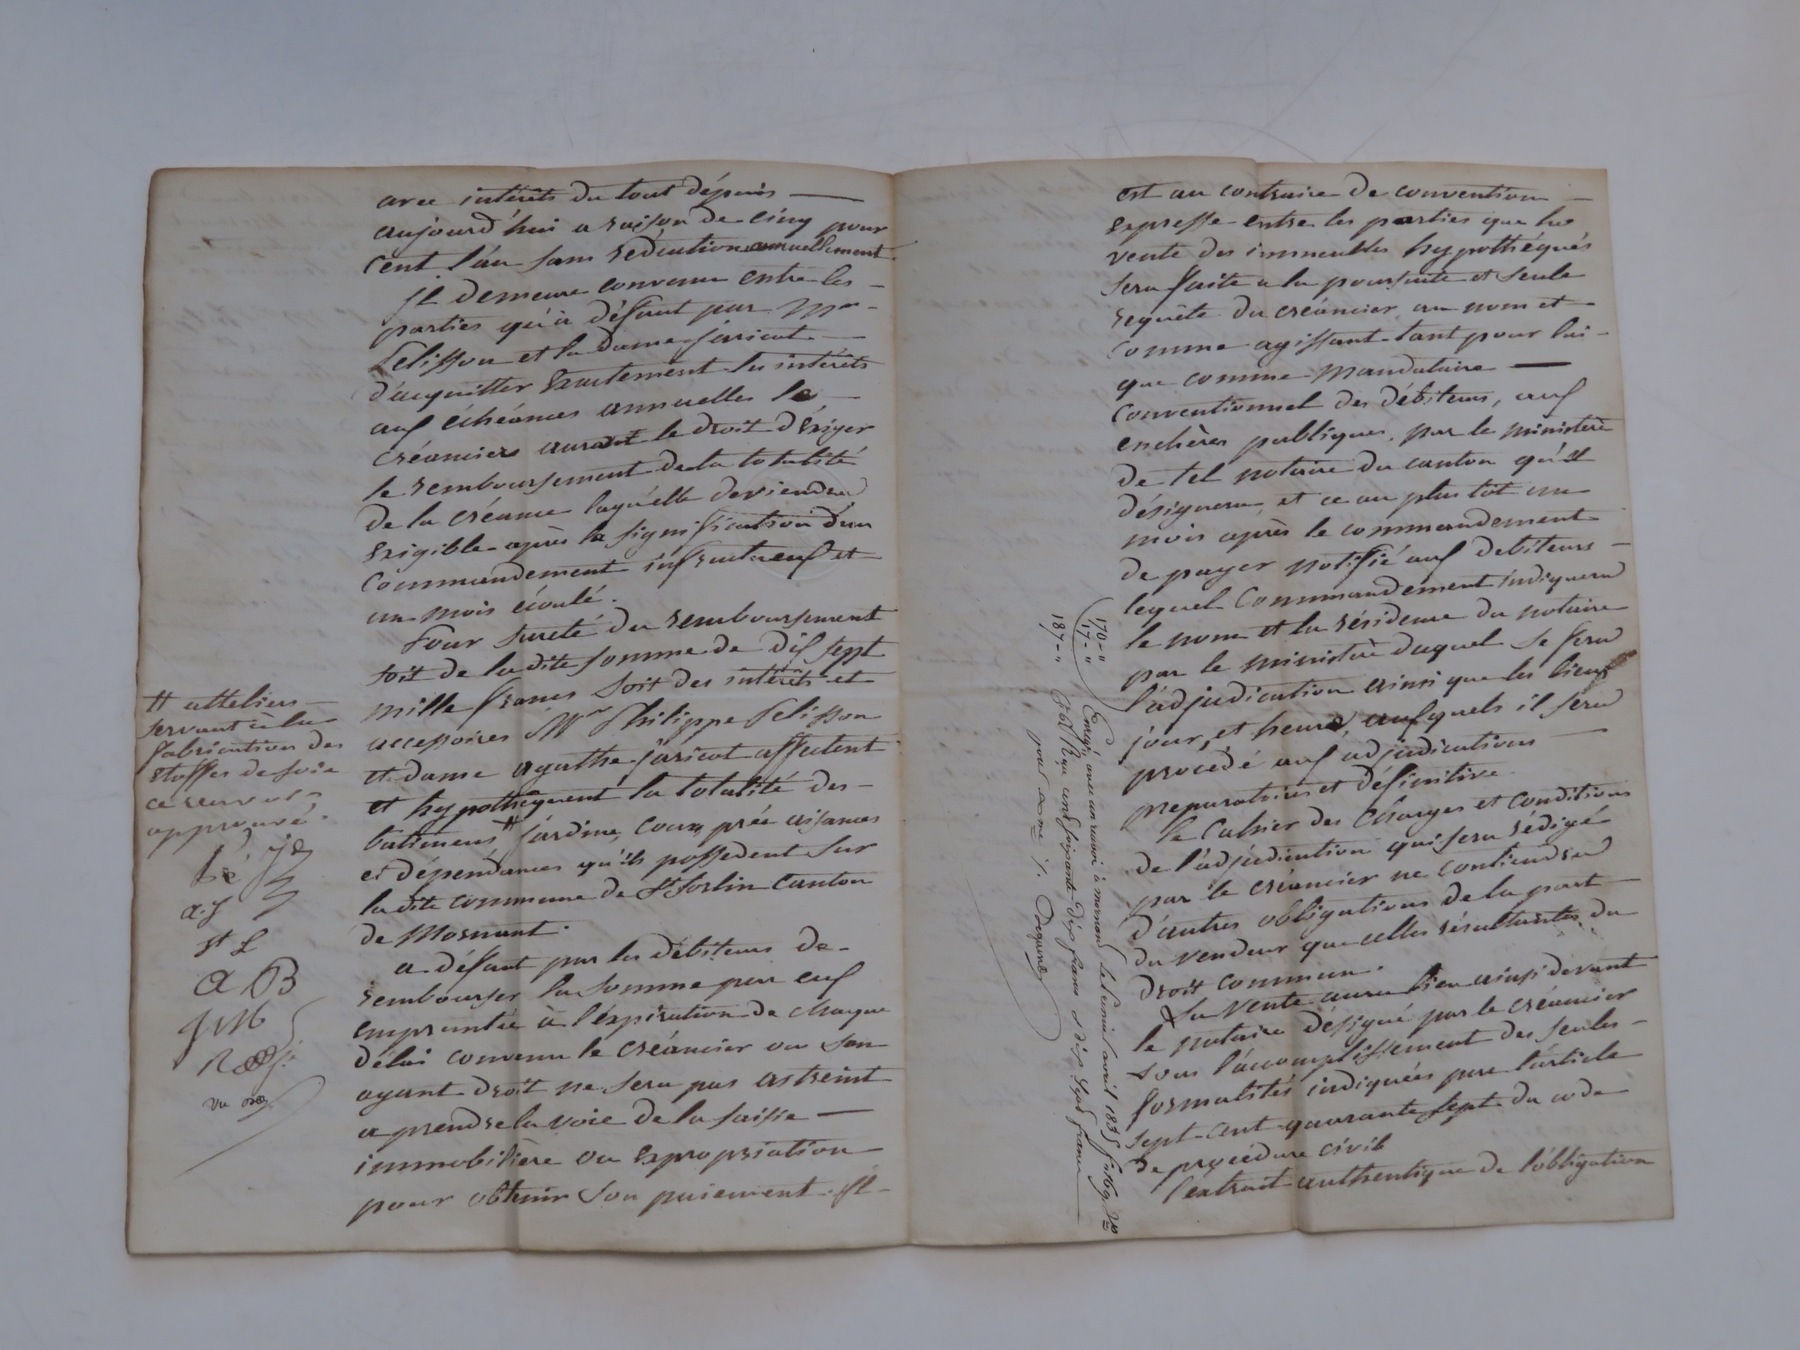 avec intérêts du tout dépuis
aujourd'hui a raison de cinq pour
cent l'an sans réduction annuellement
Il demeure convenu entre les
parties qu'à défaut par Mr
Pelisson et la dame Jaricot
d'acquitter exactement les intérêts
aux échéances annuelles le
créancier aurait le droit d'exiger
le remboursement de la totalité
de la créance laquelle deviendra
exigible après la signification d'un
Commandement infructueux et
un mois écoulé.
Pour sureté du remboursement
soit de la dite somme de dix sept
mille francs soit des intérêts et
accessoires Mr Philippe Pelisson
et dame agathe Jaricot affectent
et hypothèquent la totalité des
batimens # jardins, cour, prés aisances
et dépendances qu'ils possedent sur
la dite commune de St Sorlin Canton
de Mornant.
a défaut par les débiteurs de
rembourser la somme par eux
empruntée à l'expiration de chaque
délai convenu le créancier ou son
ayant droit ne sera pas astreint
a prendre la voie de la saisie
immobilière ou expropriation
pour obtenir son paiement. Il
# atteliers
servant à la
fabrication des
étoffes de soie
ce renvoi
approuvé.
a. J
St L
A B
est au contraire de convention
expresse entre les parties que la
vente des immeubles hypothéqués
sera faite a la poursuite et seule
requête du créancier, au nom et
comme agissant tant pour lui
que comme mandataire
Conventionnel des débiteurs, aux
enchères publiques, par le ministère
de tel notaire du canton qu'il
désignera, et ce au plus tôt un
mois après le commandement
de payer notifié aux debiteurs
lequel Commandement indiquera
le nom et la résidence du notaire
par le ministère duquel se fera
l'adjudication ainsi que les lieux
jour, et heure, auxquels il sera
procédé aux adjudications
preparatoires et définitive.
Le Cahier des Charges et conditions
de l'adjudication qui sera rédigé
par le créancier ne contiendra
d'autres obligations de la part
du vendeur que celles résultantes du
droit commun.
La Vente aura lieu ainsi devant
le notaire désigné par le créancier
sous l'accomplissement des seules
formalités indiquées par l'article
sept-cent-quarante sept du code
de procédure civile
l'extrait authentique de l'obligation
170 - "
17 - "
187 - "
Enregé avec un renvoi à mornant le premier avril 1835